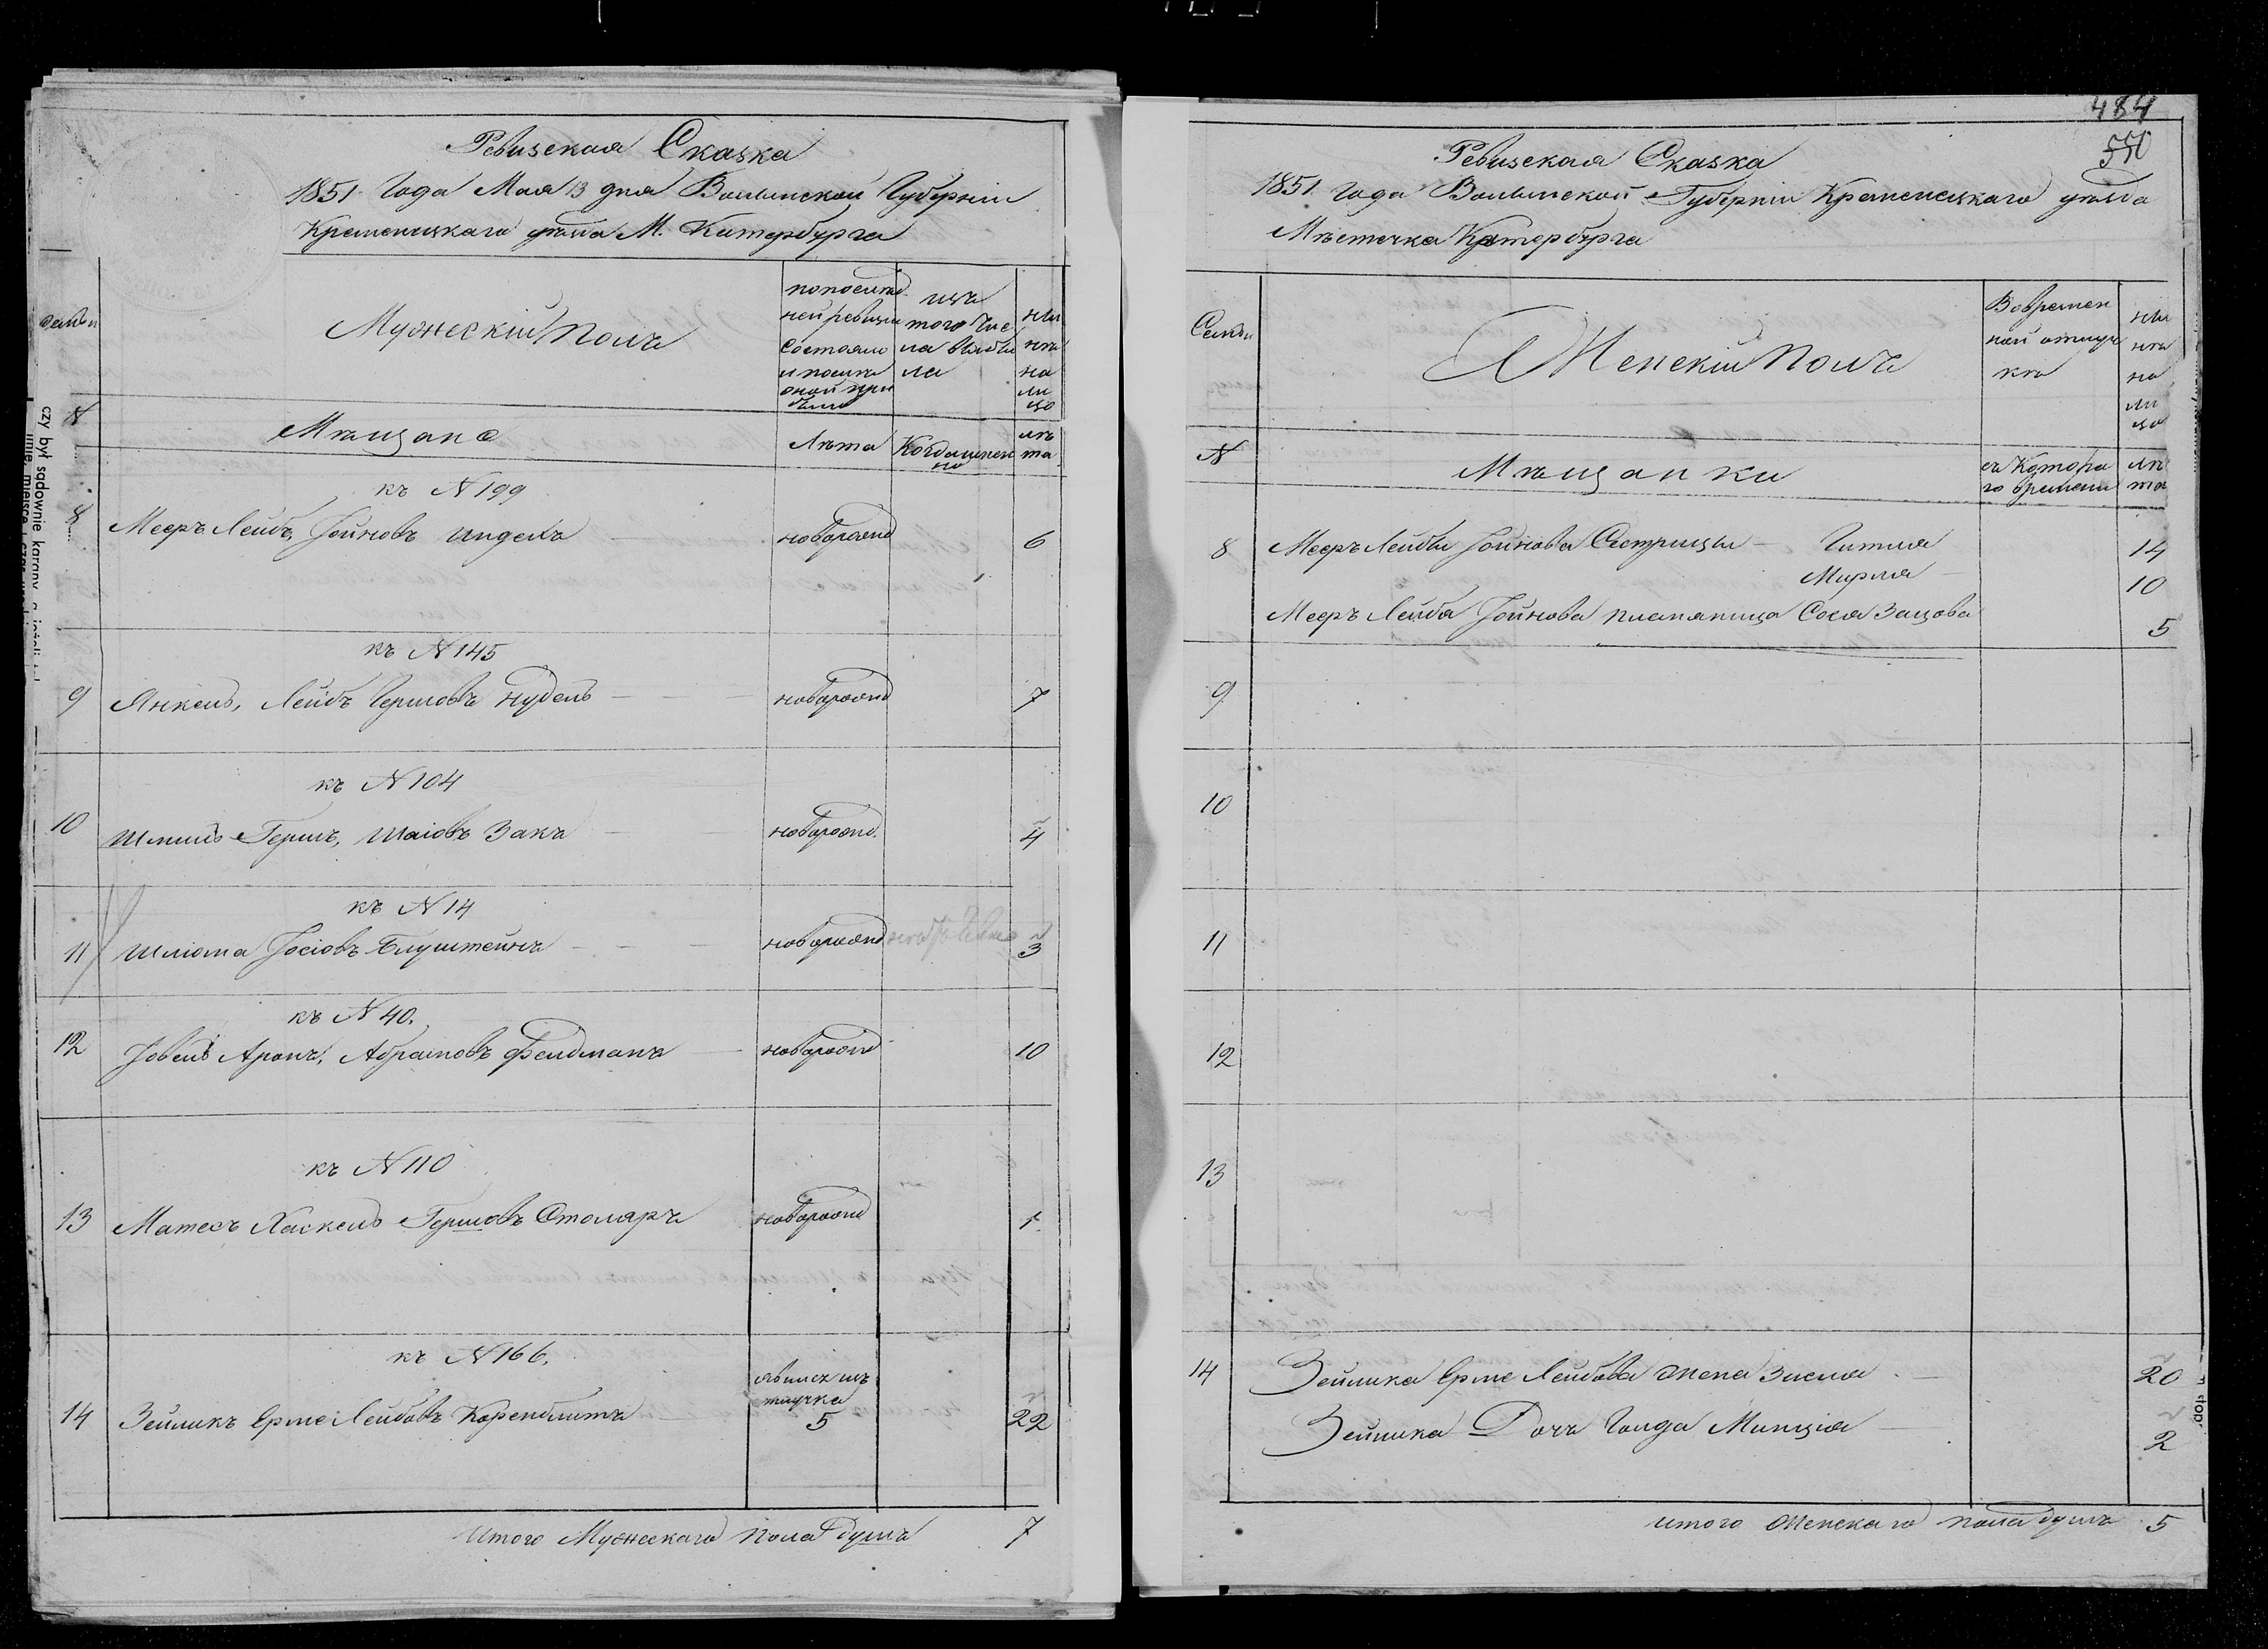 Ревизская Сказка
1851 Года Мая 13 дня Волынской Губерніи
Кременецкаго уѣзда М. Катербурга
Семьи
Мужескій Полъ
по послѣд
ней ревизіи
состояло
и послѣ
оной при
было
изъ
того чис
ла выбы
ло
ны
нѣ
на
ли
цо
№
Мѣщане
Лѣта
Когда именно
лѣ
та
къ № 199
8 Мееръ Лейбъ, Іойновъ Индекъ новорожд 6
къ № 145
9 Янкель, Лейбъ Гершовъ Нудель новорожд 7
къ № 104
10 Шмиль Гершъ, Шаіовъ Закъ новорожд. 4
къ № 14
11 Шліома Іосіовъ Блуштейнъ новорожд 3
къ № 40.
12 Іовель Аронъ, Абрамовъ Фельдманъ новорожд 10
къ № 110
13 Матесъ Хаскель Гершовъ Столяръ новорожд 1
къ № 166.
явился изъ
14 Зейликъ Ерме Лейбовъ Коренблитъ 5 22
Итого Мужескаго Пола душъ 7
484
550
Ревизская Сказка
1851 года Волынской Губерніи Кременецкаго уѣзда
Мѣстечка Катербурга
Семьи
Женскій Полъ
Во времен
ной отлуч
кѣ
ны
нѣ
на
ли
цо
№
Мѣщанки
съ котора
го времени
лѣ
та
8 Мееръ Лейбы Іойнова Сестрицы Гитля 14
Мирля 10
Мееръ Лейба Іойнова племяница Сося Зацова 5
9
10
11
12
13
14 Зейлика Ерме Лейбова жена Зисля 20
Зейлика Дочъ Голда Минція 2
итого Женскаго пола душъ 5
czy był sądownie karany, a jeżeli tak